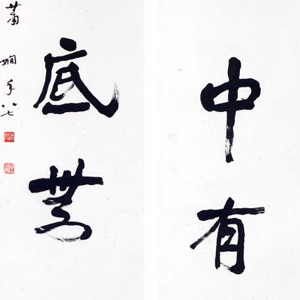 中有
底無
蕭嫻年八七